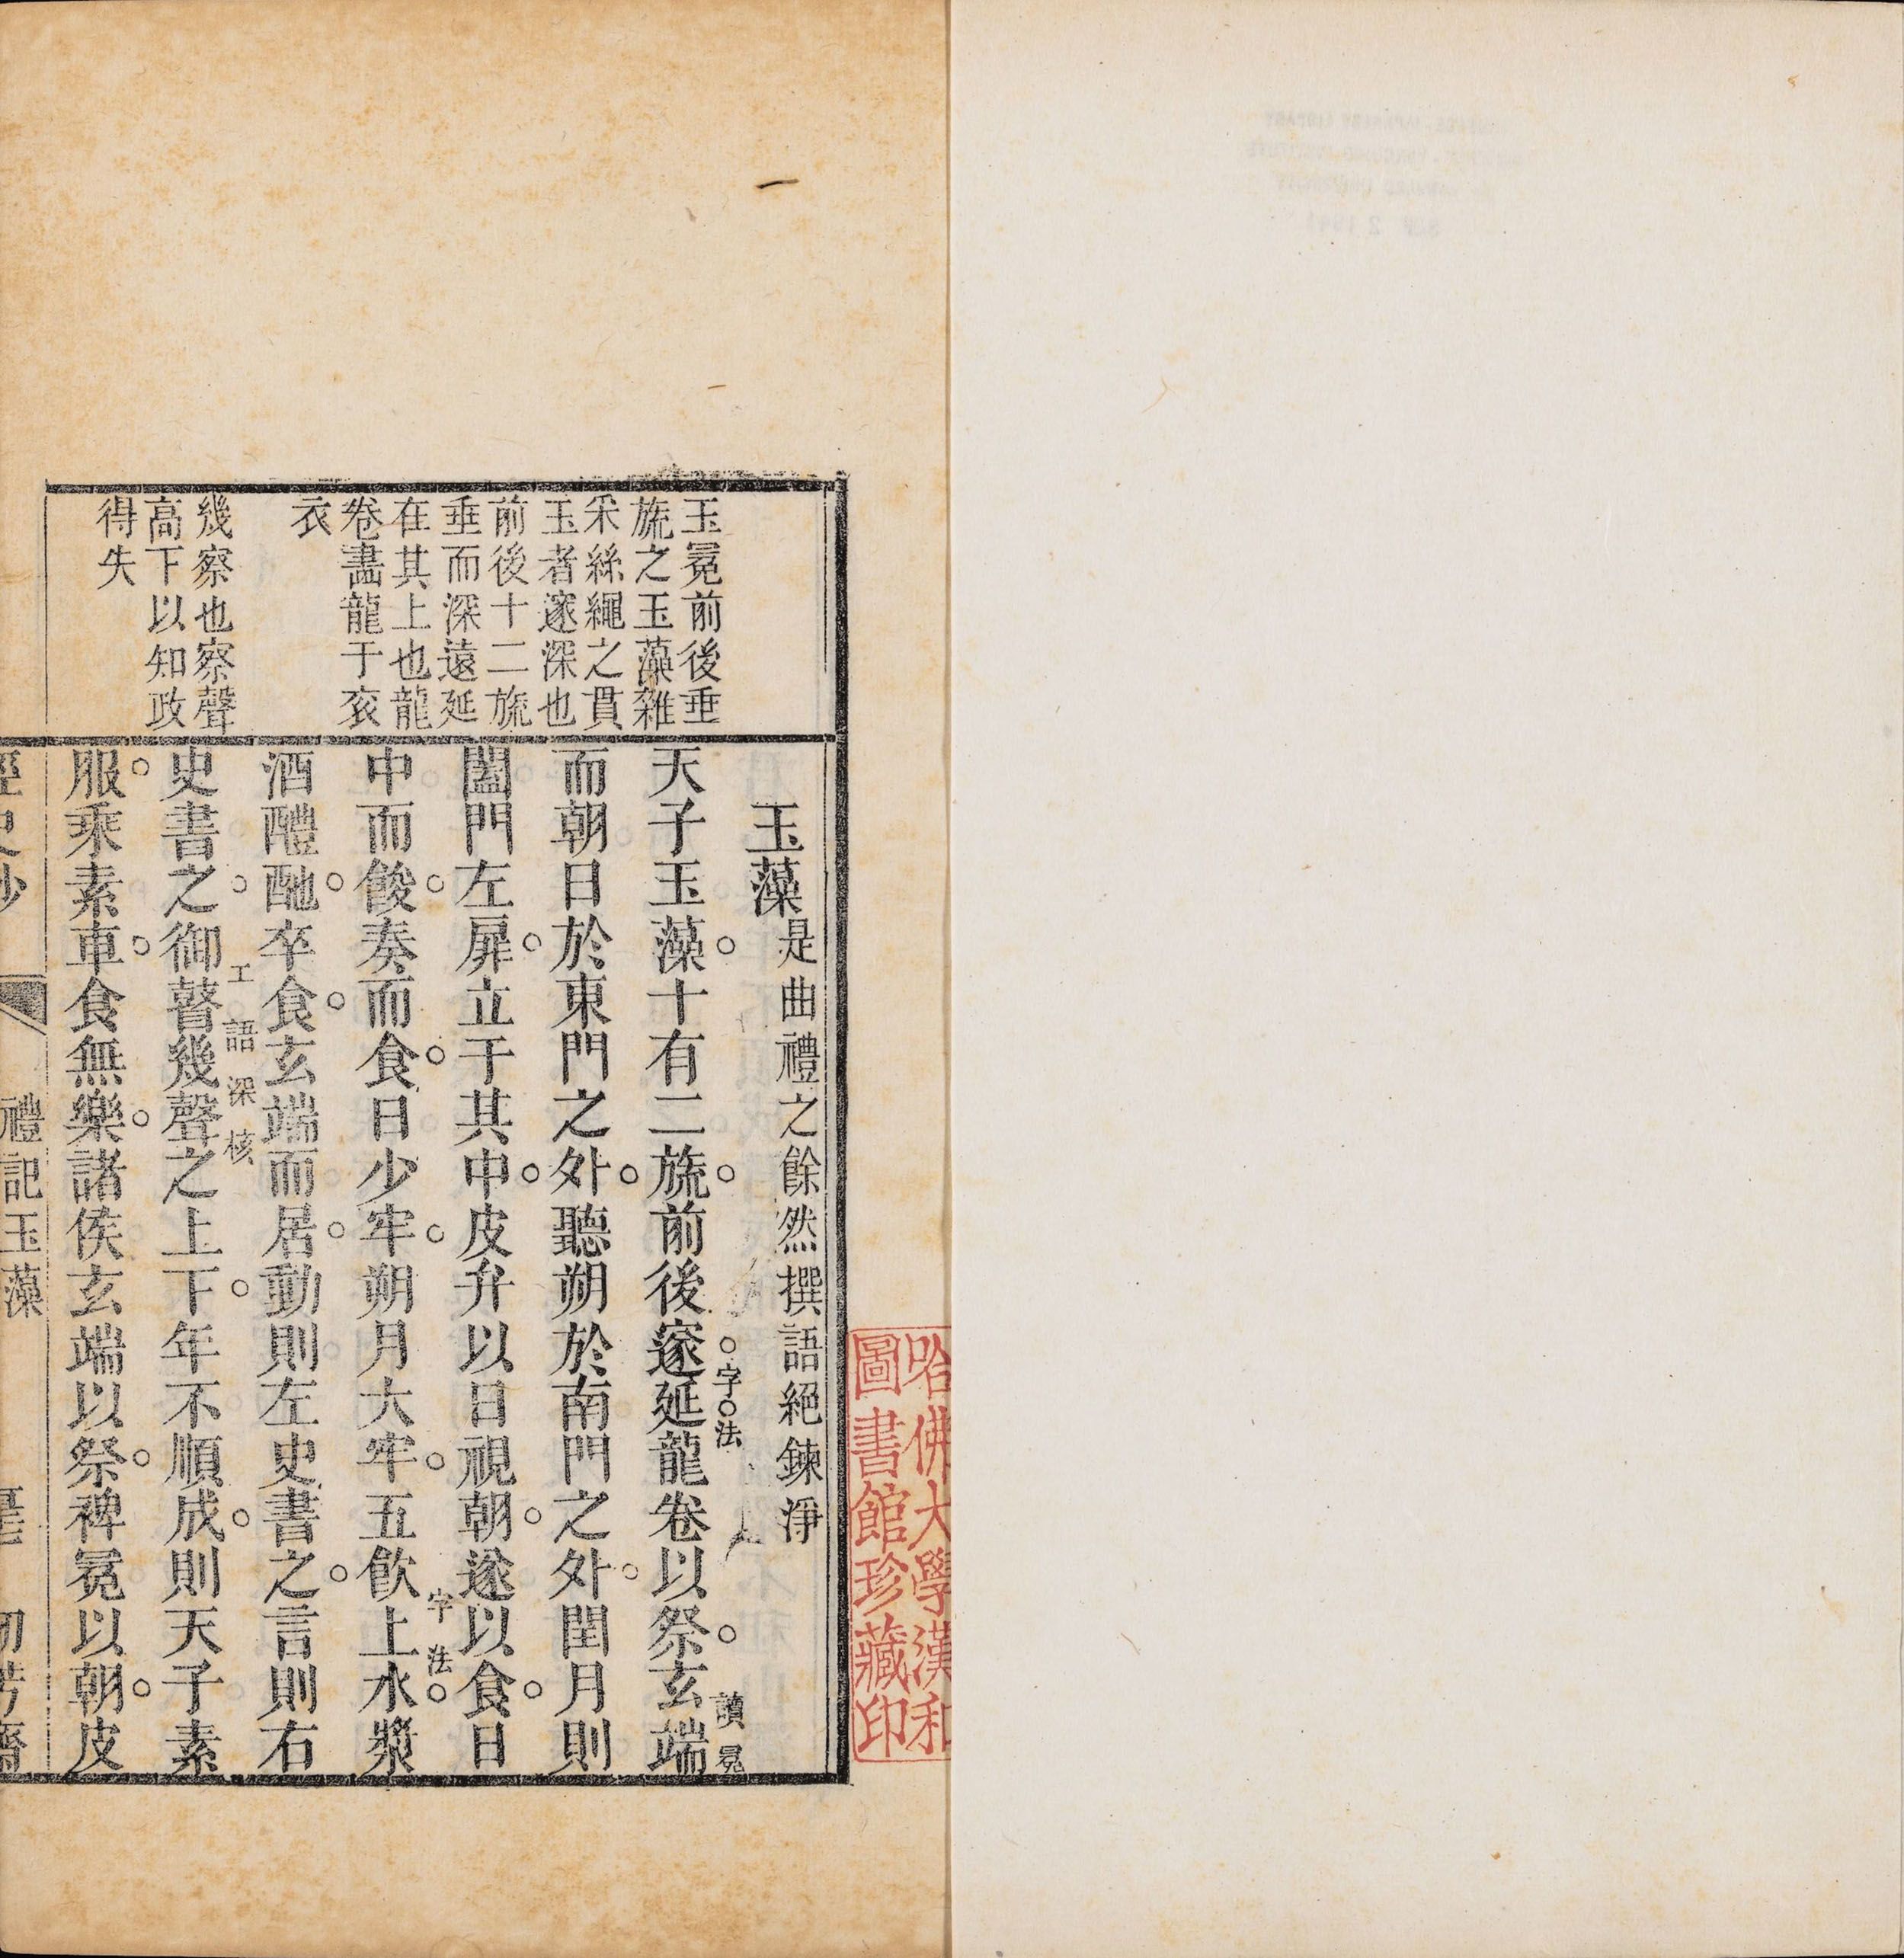 哈佛大學漢和
圖書館珍藏印
玉冕前後垂
旒之玉藻雜
采絲繩之貫
玉者邃深也
前後十二旒
垂而深遠延
在其上也龍
卷畵龍于衮
衣
幾察也察聲
高下以知政
得失
玉藻是曲禮之餘然撰語絕鍊淨
天子玉藻。十有二旒。前後邃延龍卷以祭。玄端
字法
讀冕
而朝日於東門之外。聽朔於南門之外。閏月則
闔門左扉。立于其中。皮弁以日視朝。遂以食。日
中而餕。奏而食。日少牢。朔月大牢。五飮上水。漿
字法
酒醴酏。卒食。玄端而居。動則左史書之。言則右
史書之。御瞽幾聲之上下。年不順成。則天子素
工語深核
服。乘素車。食無樂。諸侯玄端以祭。裨冕以朝。皮
禮記玉藻